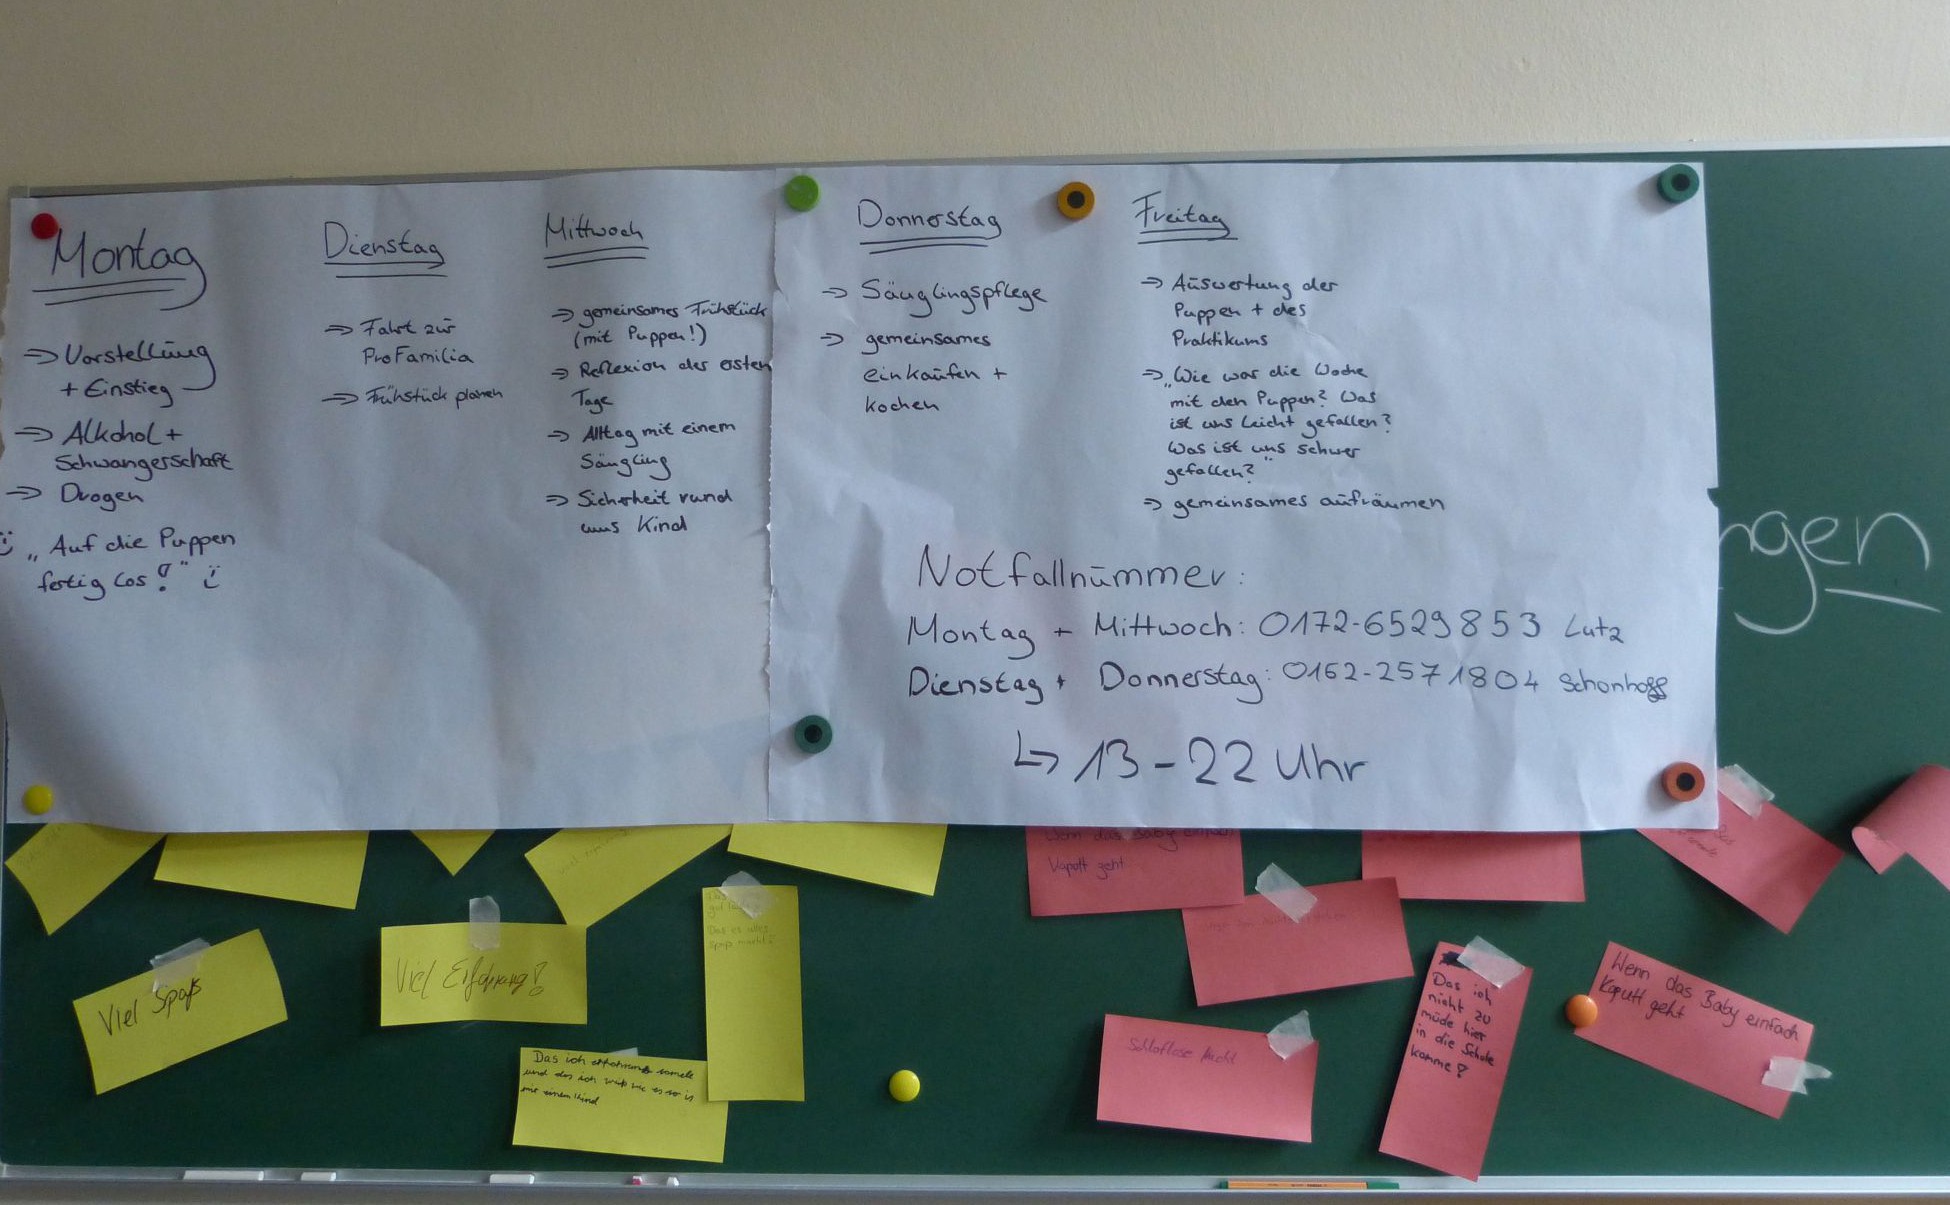 Montag
⇒ Vorstellung
+ Einstieg
⇒ Alkohol +
Schwangerschaft
⇒ Drogen
„Auf die Puppen
fertig los!"
Dienstag
⇒ Fahrt zur
ProFamilia
⇒ Frühstück planen
Mittwoch
⇒ gemeinsames Frühstück
(mit Puppen!)
⇒ Reflexion der ersten
Tage
⇒ Alltag mit einem
Säugling
⇒ Sicherheit rund
ums Kind
Donnerstag
⇒ Säuglingspflege
⇒ gemeinsames
einkaufen +
kochen
Freitag
⇒ Auswertung der
Puppen + des
Praktikums
⇒ „Wie war die Woche
mit den Puppen? Was
ist uns leicht gefallen?
Was ist uns schwer
gefallen?"
⇒ gemeinsames aufräumen
Notfallnummer:
Montag + Mittwoch: 0172-6529853 Lutz
Dienstag + Donnerstag: 0162-2571804 Schonhoff
↳ 13-22 Uhr
ngen
Viel Spaß
Viel Erfahrung!
Das es alles
spaß macht!
Das ich erfahrung samele
und das ich weiß wie es so is
mit einem Kind
Wenn das Baby einfach
Kaputt geht
Schlaflose Nacht
Das ich
nicht zu
müde hier
in die Schule
komme!
Wenn das Baby einfach
Kaputt geht